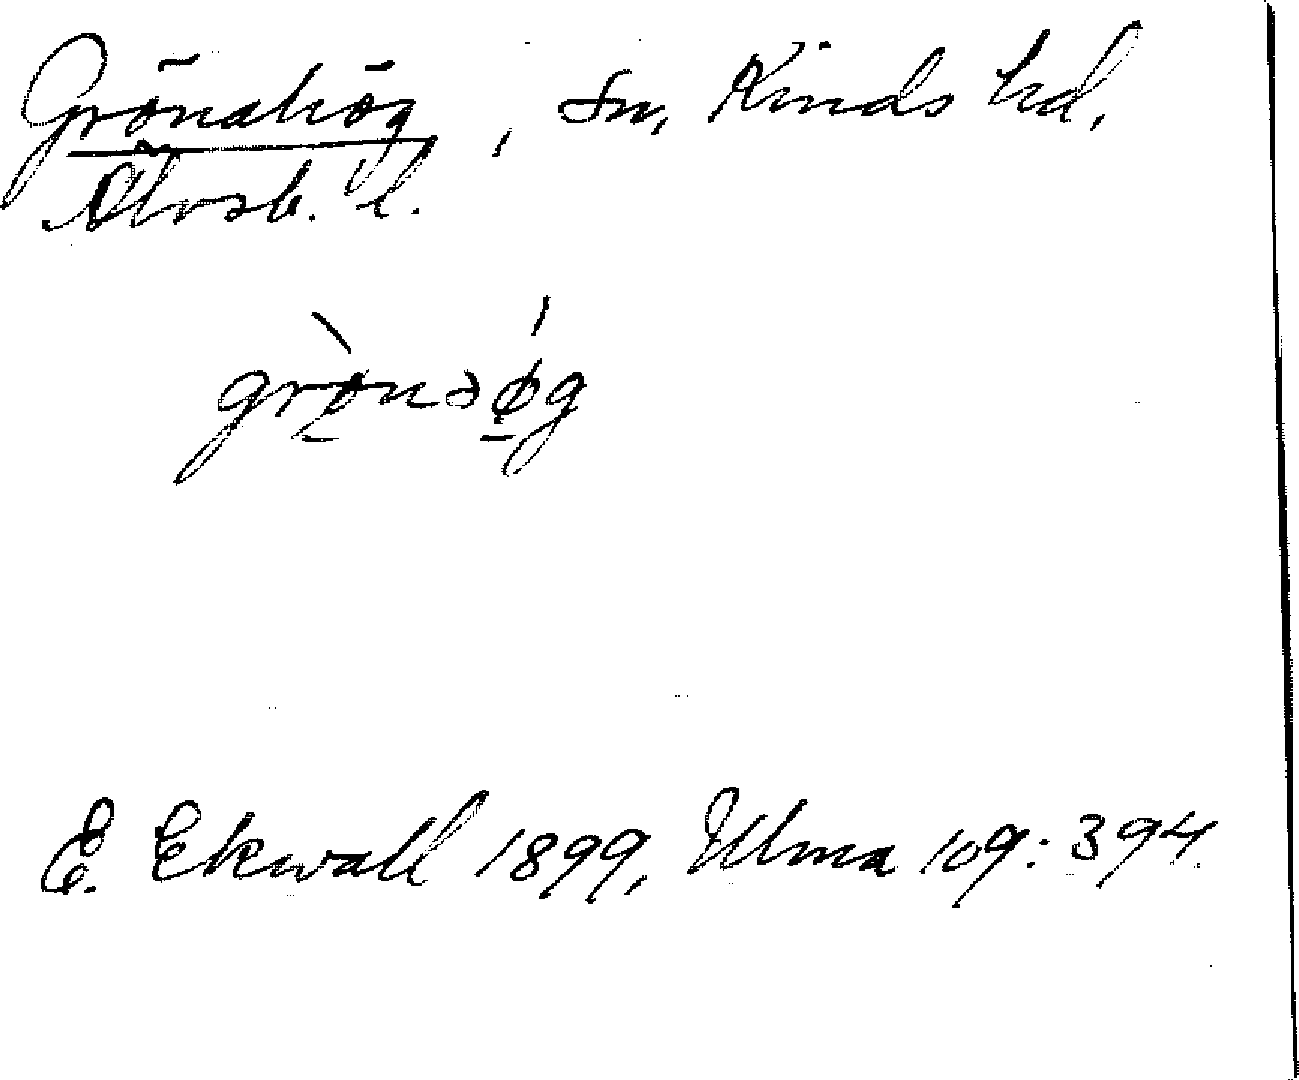 Grönahög, sn, Kinds hd,
Älvsb. l.
grø̀nəǿg
E. Ekwall 1899, Ulma 109:394.